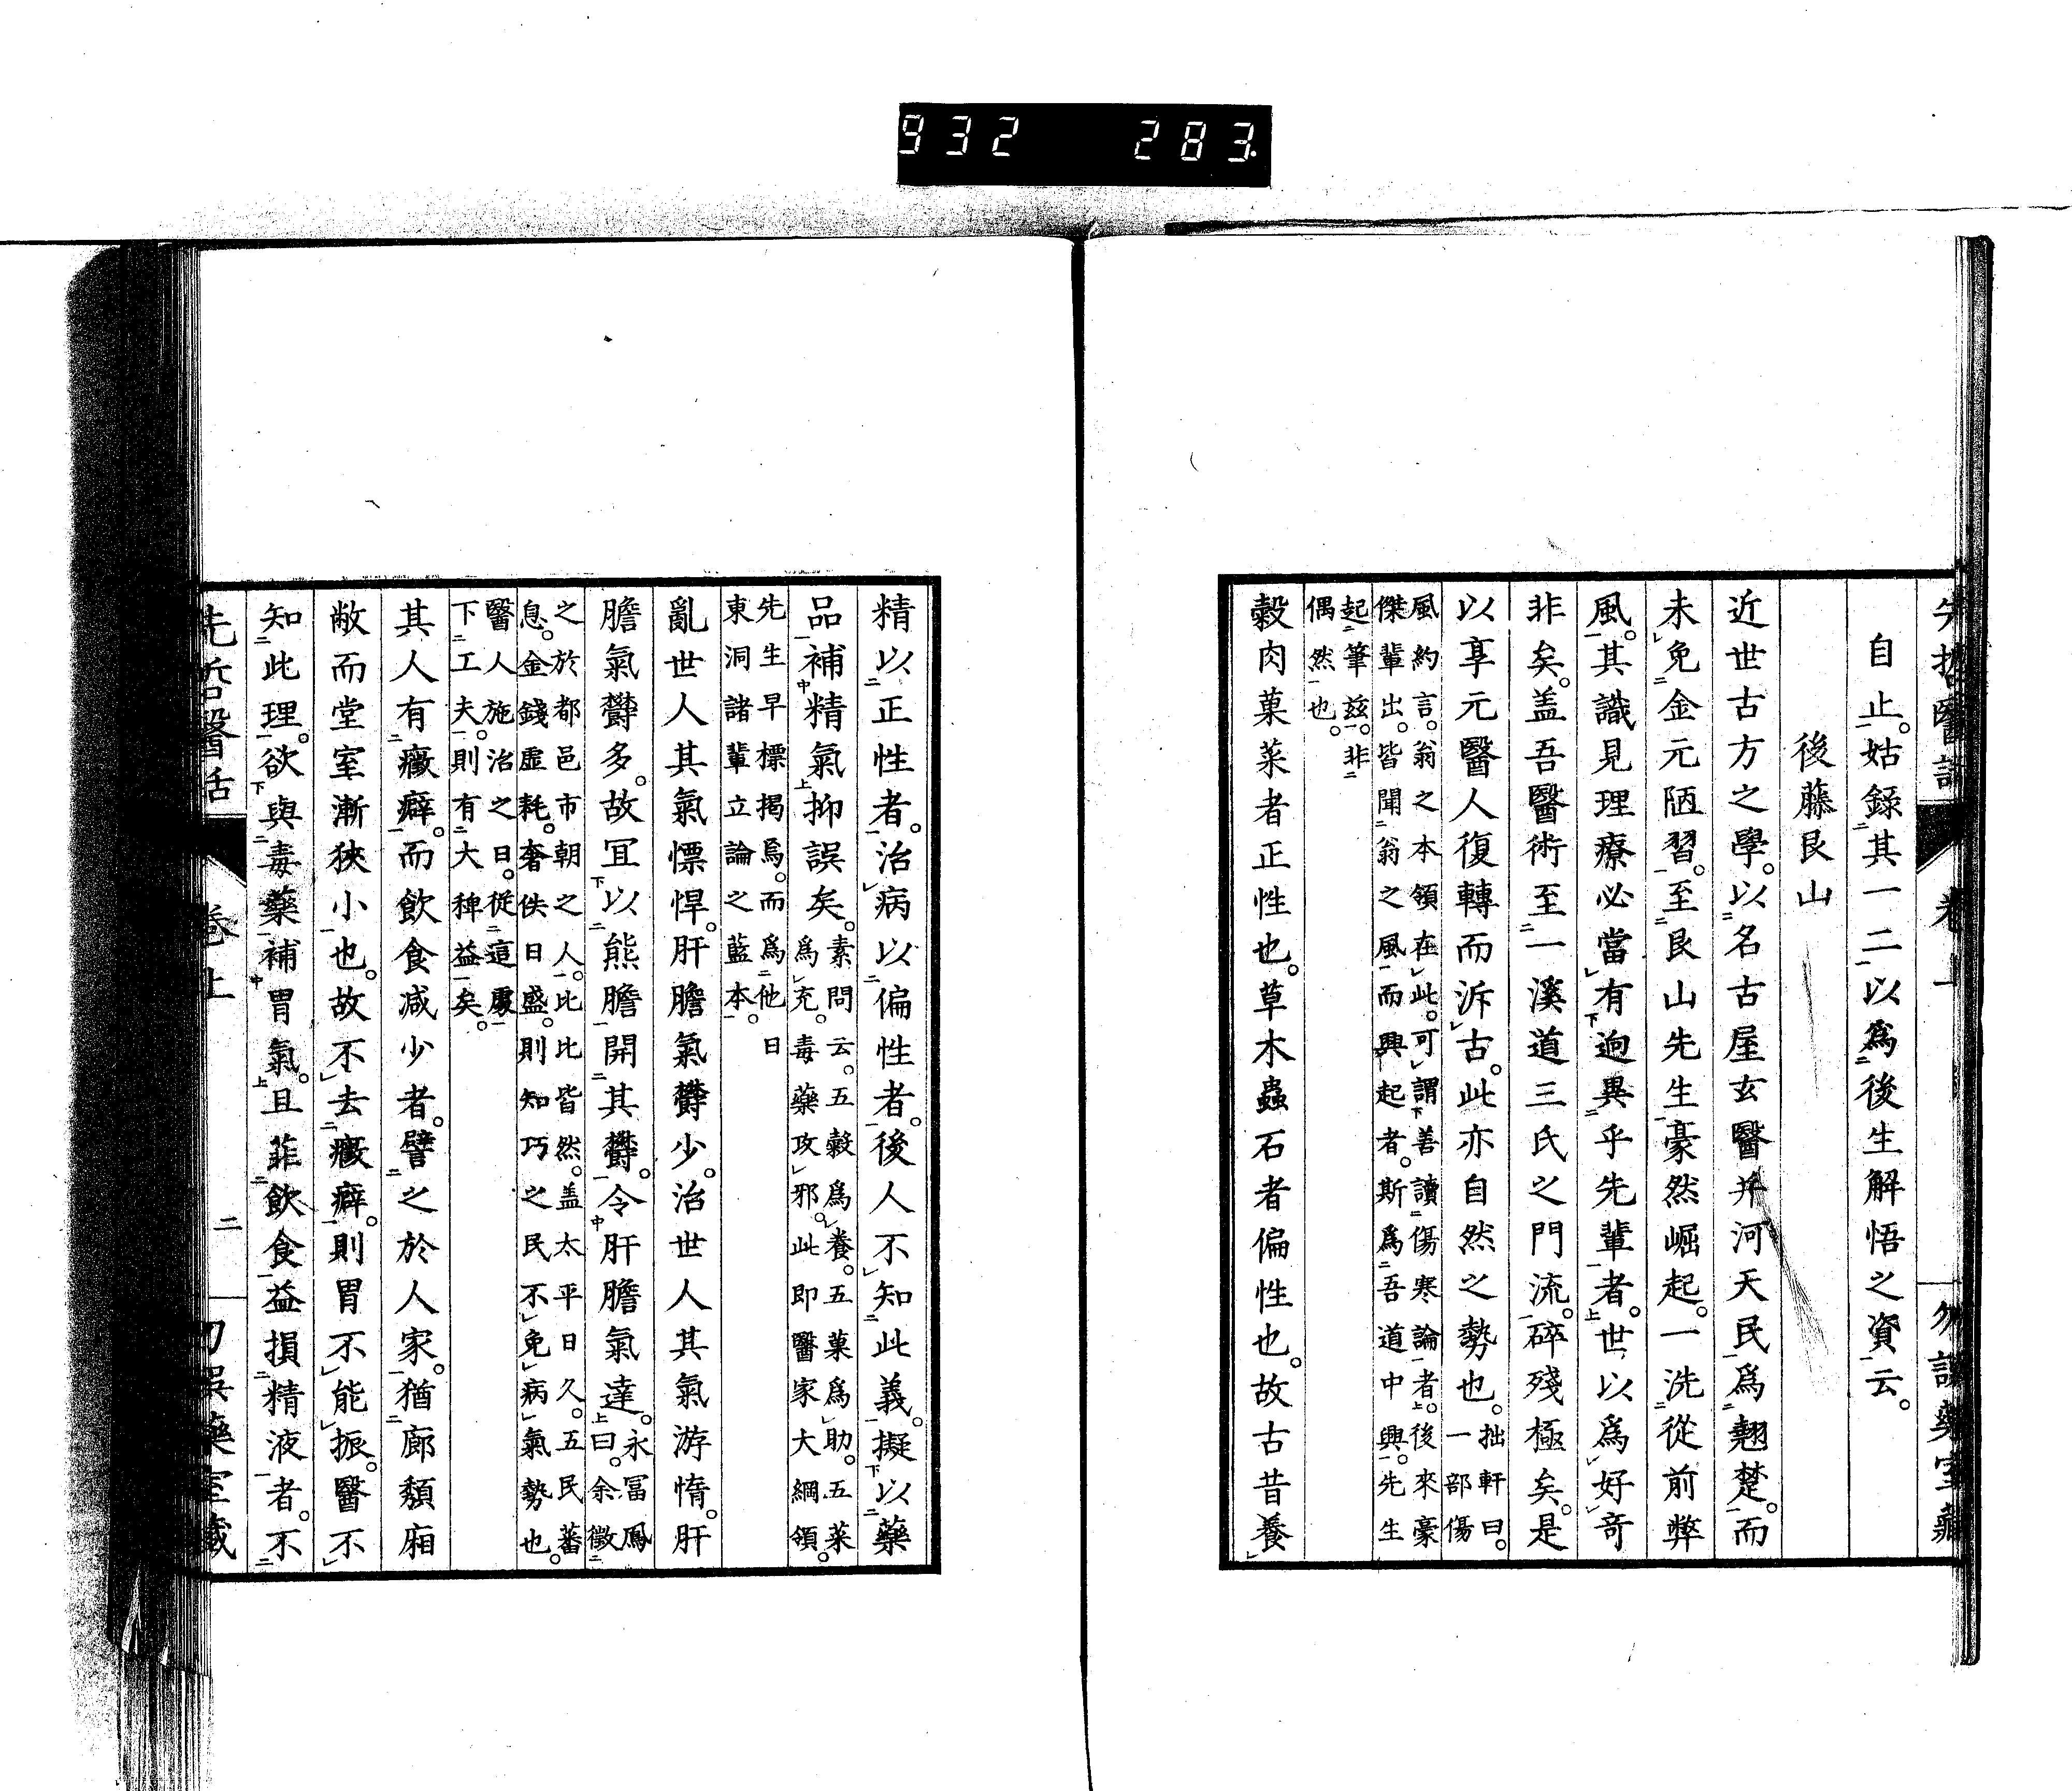 932 283
先哲醫話 卷上 勿誤藥室藏
自止。姑錄其一二以爲後生解悟之資云。
後藤艮山
近世古方之學。以名古屋玄醫并河天民爲翹楚。而
未免金元陋習。至艮山先生豪然崛起。一洗從前弊
風。其識見理療必當有逈異乎先輩者。世以爲好奇
非矣。盖吾醫術至一溪道三氏之門流。碎殘極矣。是
以享元醫人復轉而泝古。此亦自然之勢也。拙軒曰。一部傷
風約言。翁之本領在此。可謂善讀傷寒論者。後來豪
傑輩出。皆聞翁之風而興起者。斯爲吾道中興。先生
起筆茲。非
偶然也。
穀肉菓菜者正性也。草木蟲石者偏性也。故古昔養
精以正性者。治病以偏性者。後人不知此義。擬以藥
品補精氣抑誤矣。素問云。五穀爲養。五菓爲助。五菜
爲充。毒藥攻邪。此即醫家大綱領。
先生早標揭焉。而爲他日
東洞諸輩立論之藍本。
亂世人其氣慓悍。肝膽氣欝少。治世人其氣游惰。肝
膽氣欝多。故冝以熊膽開其欝。令肝膽氣達。永冨鳳曰。余徵
之於都邑市朝之人。比比皆然。盖太平日久。五民蕃
息。金錢虛耗。奢佚日盛。則知巧之民不免病氣勢也。
醫人施治之日。從這處
下工夫。則有大稗益矣。
其人有癥癖。而飲食減少者。譬之於人家。猶廊頽廂
敝而堂室漸狹小也。故不去癥癖。則胃不能振。醫不
知此理。欲與毒藥補胃氣。且菲飲食益損精液者。不
先哲醫話 卷上 二 勿誤藥室藏